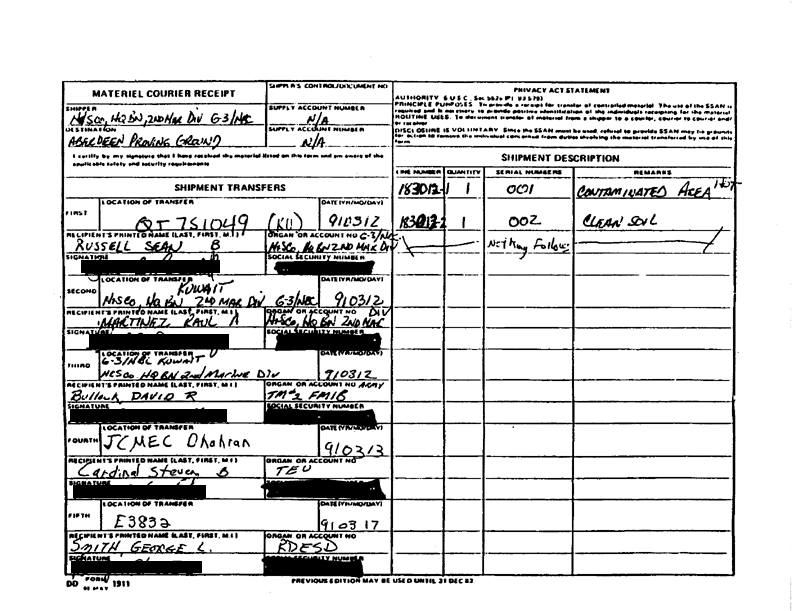 MATERIEL COURIER RECEIPT
SHIPPER'S CONTROL/DOCUMENT NO
PRIVACY ACT STATEMENT
AUTHORITY 5 U S C, Sec 552a (P L 93 579)
PRINCIPLE PURPOSES To provide a receipt for transfer of controlled material The use of the SSAN is
required and is necessary to provide positive identification of the individuals receipting for the material
ROUTINE USES. To document transfer of material from a shipper to a courier, courier to courier and/
or receiver
DISCLOSURE IS VOLUNTARY Since the SSAN must be used, refusal to provide SSAN may be grounds
for action to remove the individual concerned from duties involving the material transferred by use of this
form
SHIPPER
HQ BN, 2ND MAR DIV G-3/NBC
SUPPLY ACCOUNT NUMBER
N/A
DESTINATION
ABERDEEN PROVING GROUND
SUPPLY ACCOUNT NUMBER
N/A
I certify by my signature that I have received the material listed on this form and am aware of the
applicable safety and security requirements
SHIPMENT DESCRIPTION
LINE NUMBER QUANTITY SERIAL NUMBERS REMARKS
183012-1 1 001 CONTAMINATED AREA HOT
183012-2 1 002 CLEAN SOIL
Nothing Follows
SHIPMENT TRANSFERS
FIRST
LOCATION OF TRANSFER
QT 751049
DATE (YR/MO/DAY)
910312
RECIPIENT'S PRINTED NAME (LAST, FIRST, M I)
RUSSELL SEAN B
ORGAN OR ACCOUNT NO G-3/NBC
HQ BN 2ND MAR DIV
SIGNATURE
SOCIAL SECURITY NUMBER
SECOND
LOCATION OF TRANSFER
KUWAIT
HQ BN 2ND MAR DIV G-3/NBC
DATE (YR/MO/DAY)
910312
RECIPIENT'S PRINTED NAME (LAST, FIRST, M I)
MARTINEZ RAUL A
ORGAN OR ACCOUNT NO DIV
HQ BN 2ND MAR
SIGNATURE
SOCIAL SECURITY NUMBER
THIRD
LOCATION OF TRANSFER
G-3/NBC KUWAIT
HQ BN 2nd Marine Div
DATE (YR/MO/DAY)
910312
RECIPIENT'S PRINTED NAME (LAST, FIRST, M I)
Bullock DAVID R
ORGAN OR ACCOUNT NO ARMY
FMIB
SIGNATURE
SOCIAL SECURITY NUMBER
FOURTH
LOCATION OF TRANSFER
JCMEC Dhahran
DATE (YR/MO/DAY)
910313
RECIPIENT'S PRINTED NAME (LAST, FIRST, M I)
Cardinal Steven B
ORGAN OR ACCOUNT NO
TEU
SIGNATURE
FIFTH
LOCATION OF TRANSFER
E3832
DATE (YR/MO/DAY)
910317
RECIPIENT'S PRINTED NAME (LAST, FIRST, M I)
SMITH, GEORGE L.
ORGAN OR ACCOUNT NO
RDESD
SIGNATURE
DD FORM 1911
PREVIOUS EDITION MAY BE USED UNTIL 31 DEC 82